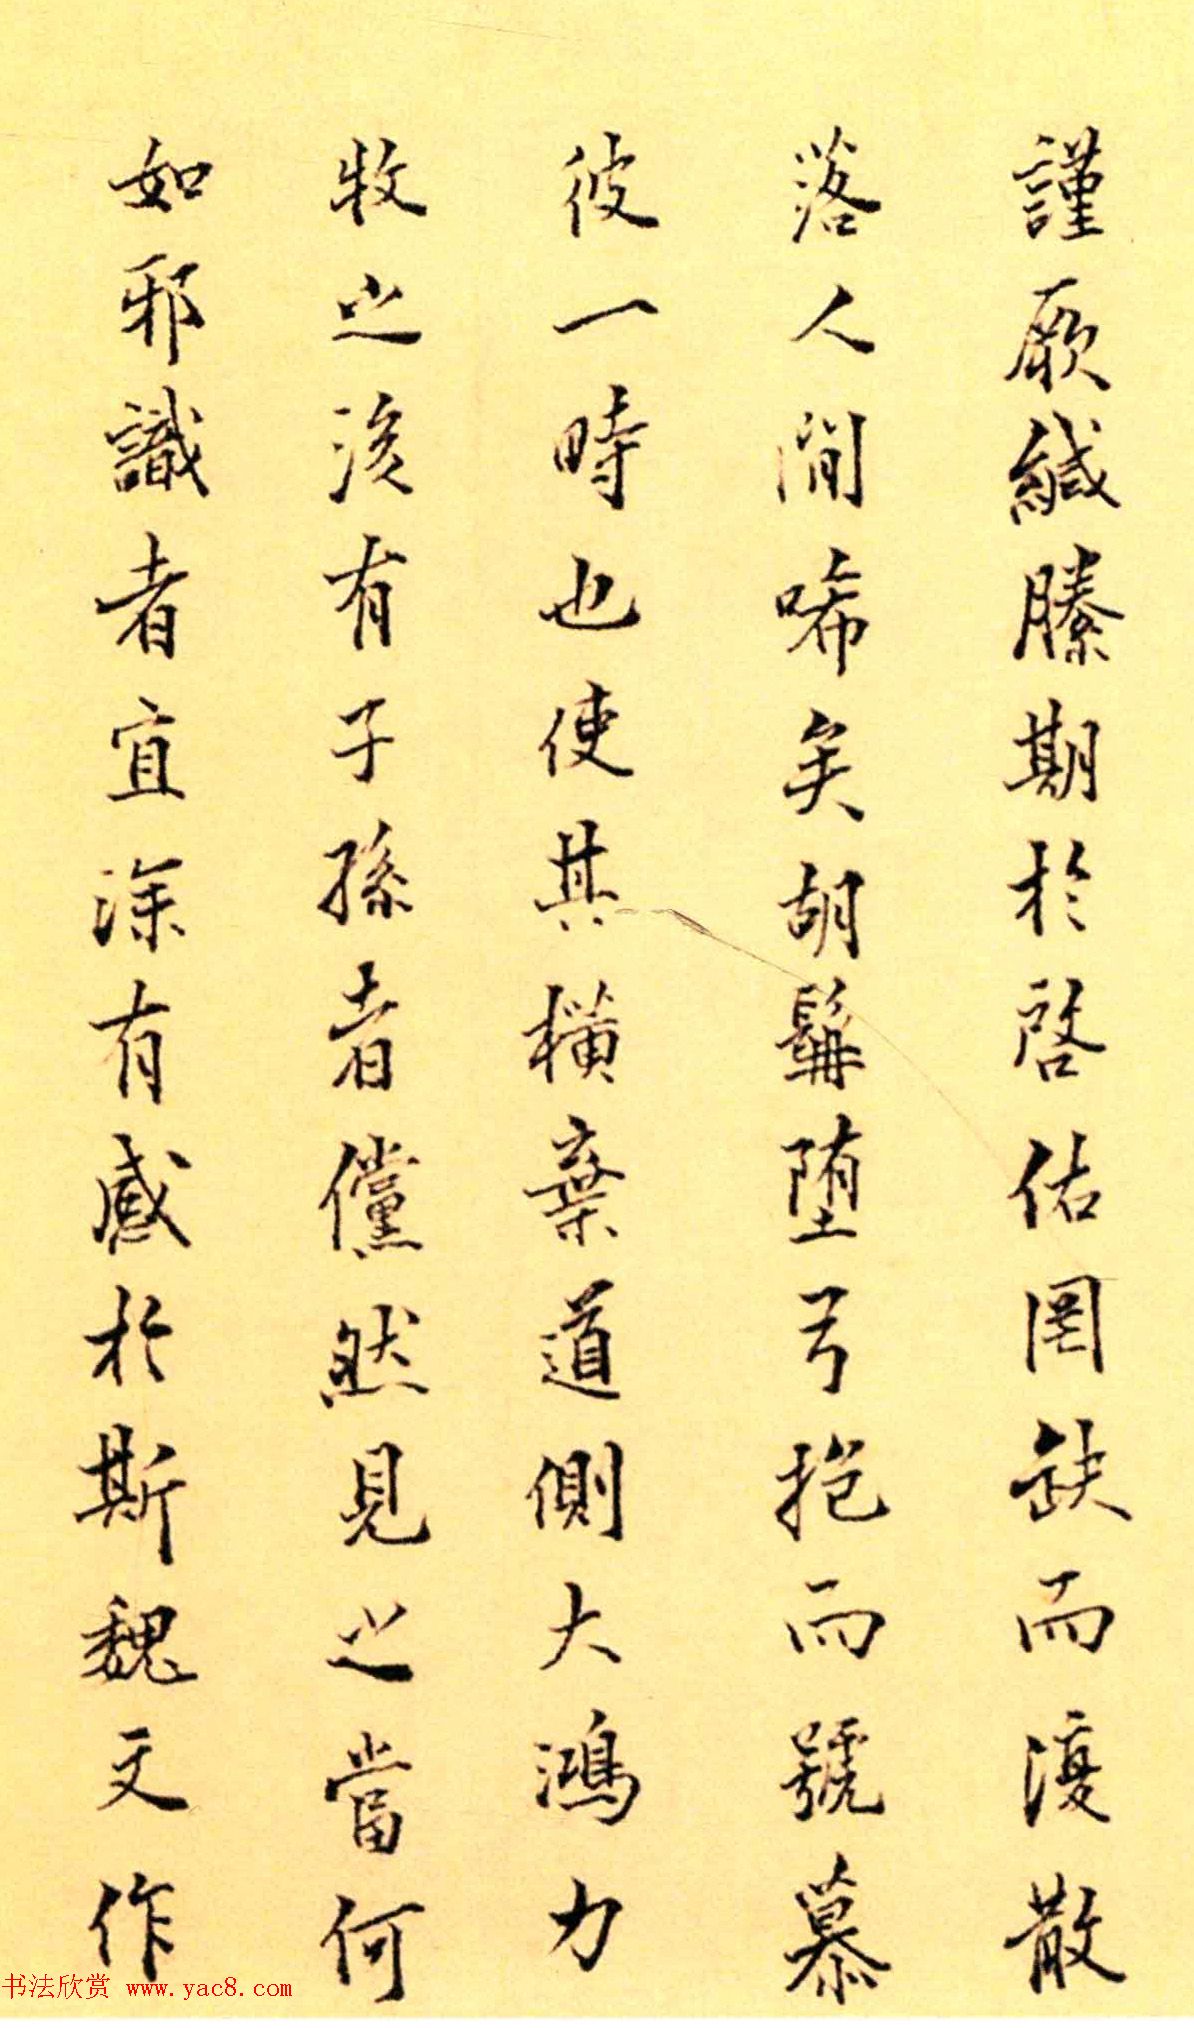 謹厥緘縢期於啓佑罔缺而復散
落人間唏矣胡髯墮弓抱而號慕
彼一時也使其橫棄道側大鴻力
牧之後有子孫者儻然見之當何
如邪識者宜深有感於斯魏文作
书法欣赏 www.yac8.com